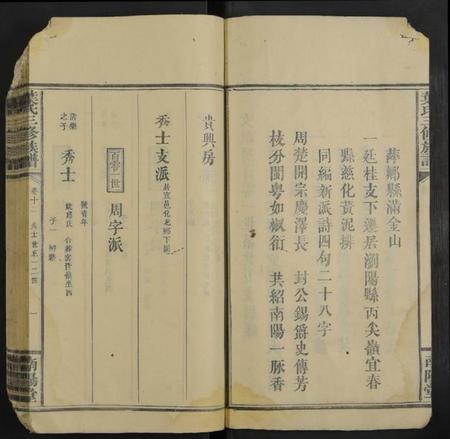 萍鄉縣滿金山
一廷桂支下遷居瀏陽縣丙尖嶺宜春
縣慈化黃泥排
同編新派詩四句二十八字
周楚開宗慶澤長　封公錫爵史傳芳
枝分閩粵如椒衍　共紹南陽一脈香
葉氏三修族譜
南陽堂
貴興房
秀士支派
居宜邑化北鄉下團
百零一世
周字派
之子
秀士
號青年
子一
葉氏三修族譜
卷十
秀士世系一二世
一
南陽堂